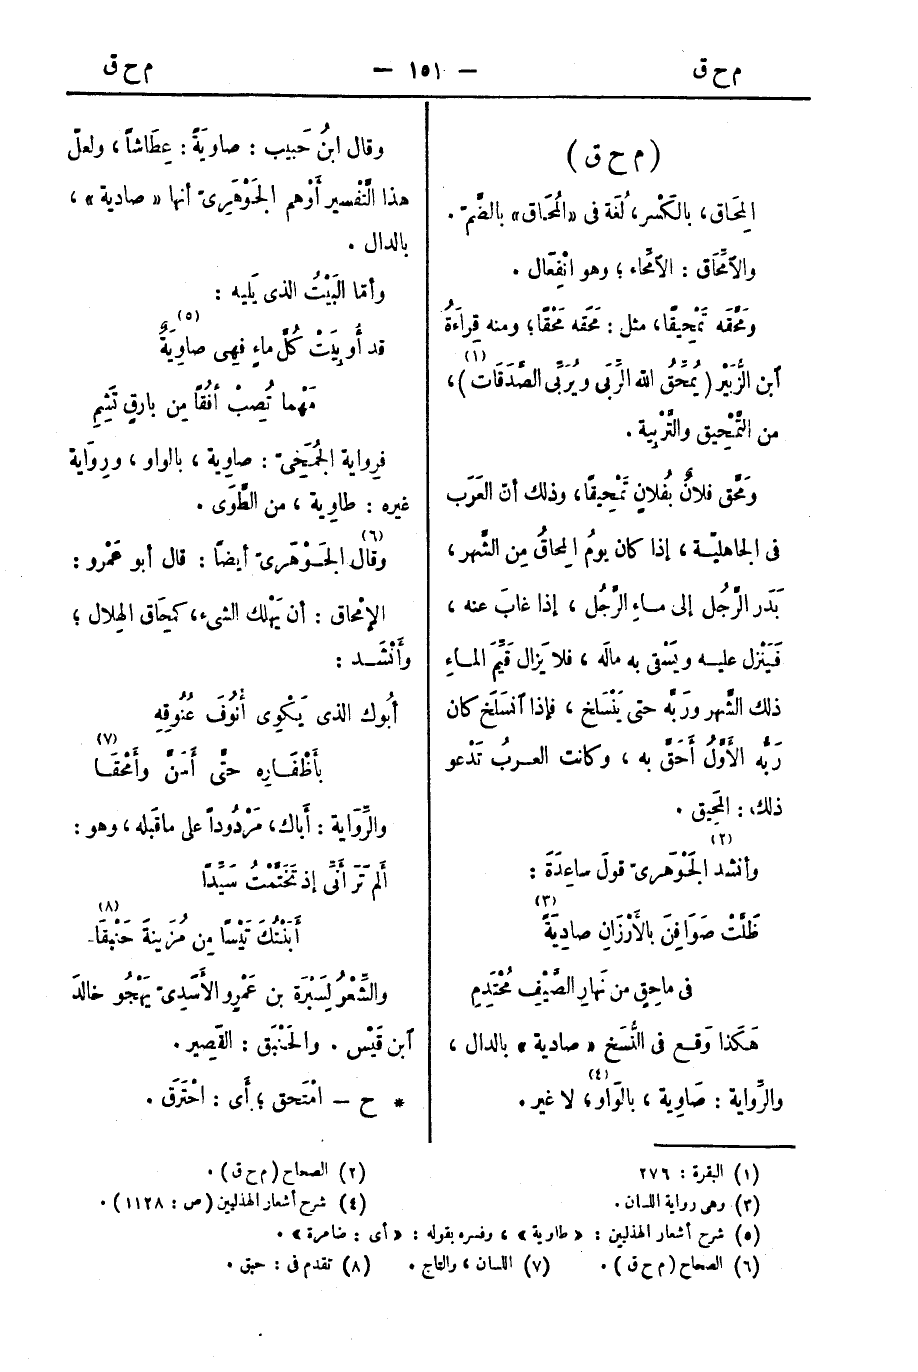 م ح ق
— ١٥١ —
م ح ق
(م ح ق)
المِحَاق، بالكَسْر، لُغة فى «المُحَاق» بالضّمّ.
والامِّحَاق : الامِّحاء ؛ وهو انْفِعال .
ومَحَّقه تَمْحِيقًا، مثل : مَحَقه مَحْقًا؛ ومنه قِراءَةُ
آبن الزُّبَيْر (يُمَحِّقُ الله الرِّبَى ويُرَبِّى الصَّدَقات)(١)،
من التَّمْحِيق والتَّرْبِية .
ومَحَّق فلانٌ بفُلانٍ تَمْحِيقًا، وذلك أنّ العَرَب
فى الجاهليّة ، إذا كان يومُ المِحاقُ مِن الشَّهر ،
بَدَر الرَّجُل إلى ماءِ الرَّجُل ، إذا غابَ عنه ،
فَيَنْزل عليه ويَسْقى به مالَه ، فلا يَزال قَيِّمَ الماءِ
ذلك الشَّهر ورَبَّه حتى يَنْسَلخ ، فإذا آنسَلَخ كان
رَبُّه الأَوَّلُ أَحَقّ به ، وكانت العربُ تَدْعو
ذلك : المَحِيق .
وأنشد الجَوْهَرىّ(٢) قولَ ساعِدَةَ :
ظَلَّتْ صَوَافِنَ بالأَرْزَانِ صادِيَةً(٣)
فى ماحِقٍ من نَهارِ الصَّيْفِ مُحْتَدِمِ
هَكذا وَقَع فى النُّسَخ « صادية » بالدال ،
والرِّواية : صَاوِية ، بالوَاو(٤)، لا غير .
وقال ابنُ حَبيب : صاويَةً : عِطَاشاً ، ولعلّ
هذا التَّفْسير أَوْهم الجَوْهَرِىّ أنها « صادية » ،
بالدال .
وأمّا البَيْتُ الذى يَليه :
قد أُوبِيَتْ كُلَّ ماءٍ فهى صاوِيَةٌ(٥)
مَهْما تُصِبْ أُفُقًا مِن بارِقٍ تَشِمِ
فرِواية الجُمَحِىّ : صاوِية ، بالواو ، ورِوَاية
غيره : طاوِية ، من الطَّوَى .
وقال الجَوْهَرىّ(٦) أيضًا : قال أبو عَمْرو :
الإمْحاق : أن يَهْلك الشىء، كمحَاق الهِلال ؛
وأَنْشَد :
أَبُوك الذى يَكْوِى أُنُوفَ عُنُوقِهِ
بأَظْفَارِه حتَّى أَنَسَّ وأَمْحَقَا(٧)
والرِّوَاية : أَباك، مَرْدُوداً على ماقَبله ، وهو :
أَلم تَرَ أَنِّى إذ تَخَتَّمْتُ سَيِّدًا
أَبَنْتُكَ تَيْسًا مِن مُزَينةَ حَنْبَقَا(٨)
والشِّعْرُ لسَبْرَة بن عَمْرو الأَسَدِىّ يَهْجُو خالدَ
آبن قَيْس . والحَنْبَق : القَصِير .
* ح — امْتَحق ؛ أَى : احْتَرَق .
(١) البقرة : ٢٧٦
(٢) الصحاح (م ح ق) .
(٣) وهى رواية اللسان .
(٤) شرح أشعار الهذليين (ص : ١١٢٨) .
(٥) شرح أشعار الهذليين : « طاوية » ، وفسره بقوله : « أى : ضامرة » .
(٦) الصحاح (م ح ق) .
(٧) اللسان ، والتاج .
(٨) تقدم فى : حبق .